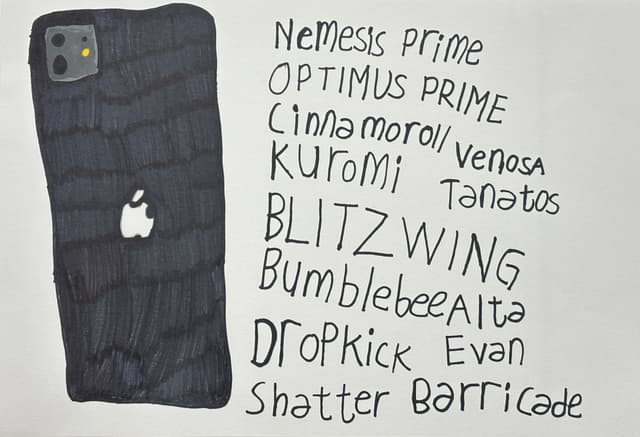 Nemesis Prime
OPTIMUS PRIME
Cinnamoroll Venosa
Kuromi Tanatos
BLITZWING
Bumblebee Alta
Dropkick Evan
Shatter Barricade